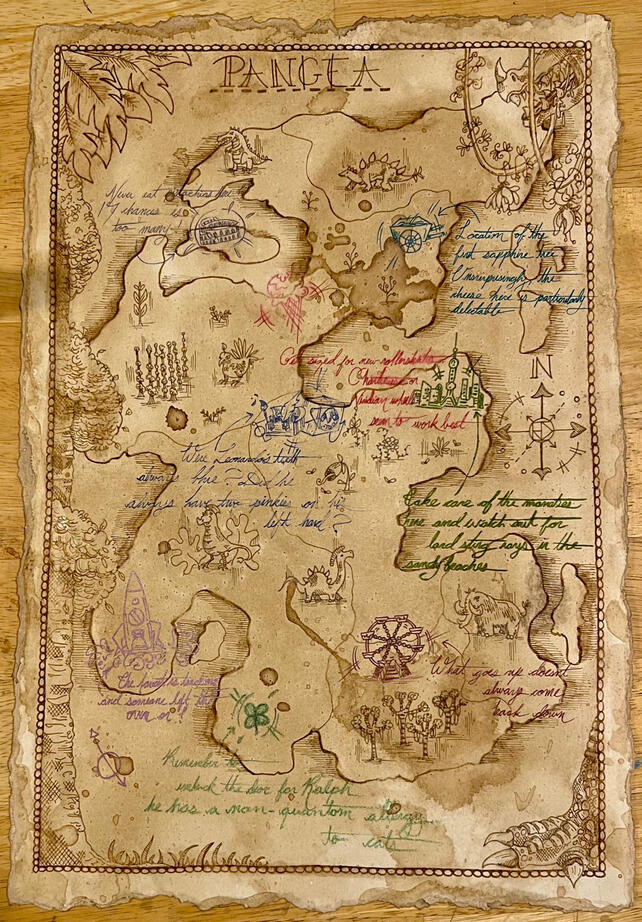 PANGEA
Never eat pistachios here
A chances is
too many!
Location of the
first sapphire tree
Unsurprisingly, the
cheese here is particularly
delectable
N
Get sized for new rollerskates
Chartreuse or
Viridian wheels
seem to work best
Were Leonardo's teeth
always blue? Did he
always have two pinkies on his
left hand?
Take care of the manatees
here and watch out for
land sting rays in the
sandy beaches
The faucet is leaking
and someone left the
oven on!
What goes up doesn't
always come
back down
Remember to
unlock the door for Ralph
he has a non-quantum allergy
to cats